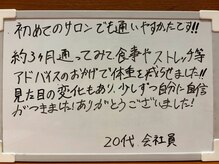 初めてのサロンでも通いやすかったです!!
約3ヶ月通ってみて食事やストレッチ等
アドバイスのおかげで体重も減らせました!!
見た目の変化もあり、少しずつ自分に自信
がつきました!ありがとうございました!
20代 会社員